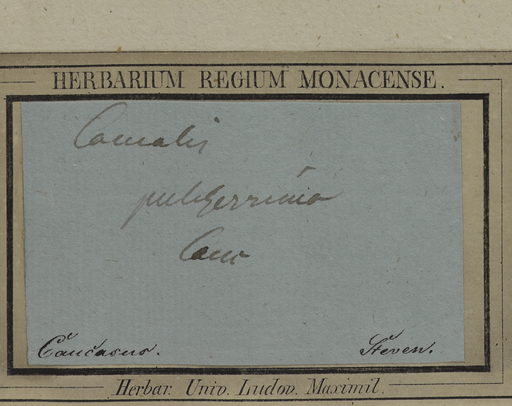 HERBARIUM REGIUM MONACENSE.
pulcherrima
Cauc
Caucasus. Steven.
Herbar. Univ. Ludov. Maximil.